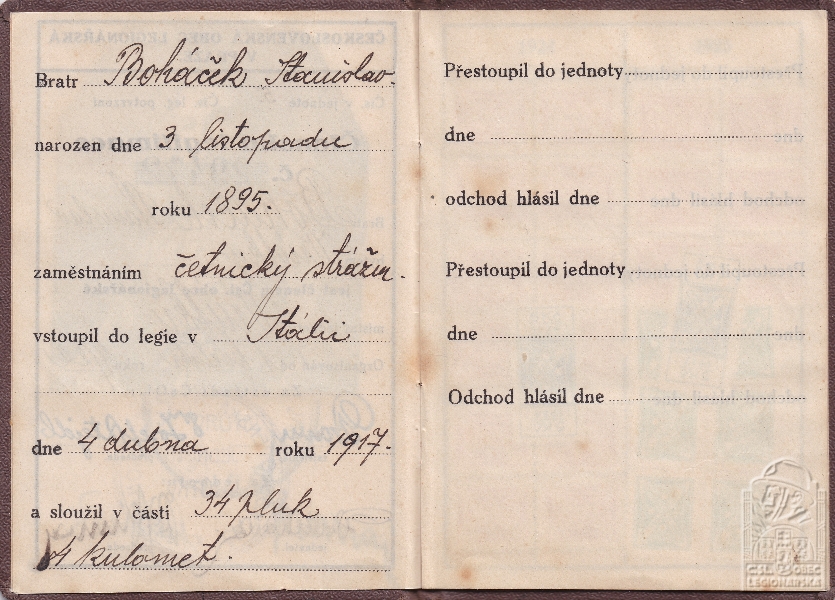 Bratr Boháček Stanislav.
narozen dne 3 listopadu
roku 1895.
zaměstnáním četnický strážm.
vstoupil do legie v Itálii
dne 4 dubna roku 1917.
a sloužil v části 34 pluk
kulomet.
Přestoupil do jednoty
dne
odchod hlásil dne
Přestoupil do jednoty
dne
Odchod hlásil dne
ČS. OBEC
LEGIONÁŘSKÁ